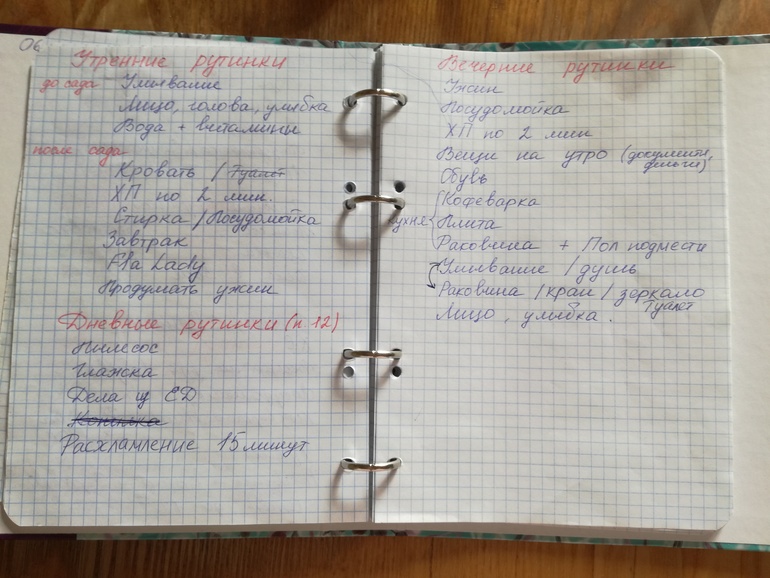 Об
Утренние рутинки
до сада Умывание
Лицо, голова, улыбка
Вода + витамины
после сада
Кровать / Туалет
ХП по 2 мин.
Стирка / Посудомойка
Завтрак
Fla Lady
Продумать ужин
Дневные рутинки (п. 12)
Пылесос
Глажка
Дела из ЕД
Расхламление 15 минут
Вечерние рутинки
Ужин
Посудомойка
ХП по 2 мин
Вещи на утро (документы, деньги)
Обувь
Кофеварка
кухня Плита
Раковина + Пол подмести
Умывание / душ
Раковина / кран / зеркало
Туалет
Лицо, улыбка.